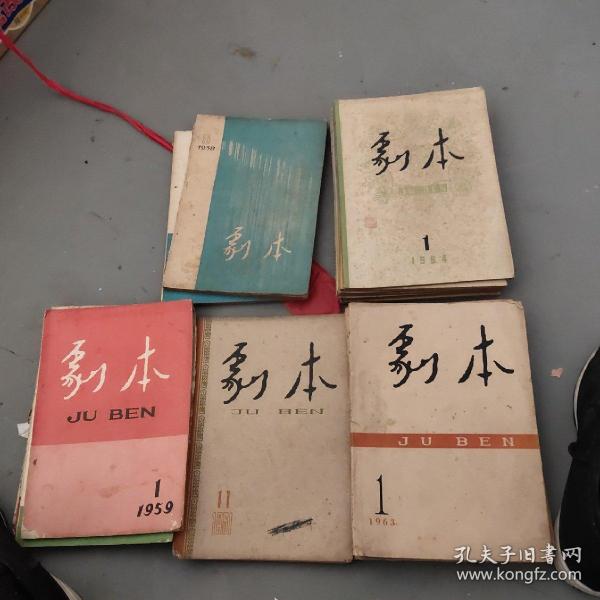 1958
劇本
劇本
1
1964
劇本
JU BEN
1
1959
劇本
JU BEN
11
劇本
JU BEN
1
1963
孔夫子旧书网
www.kongfz.com